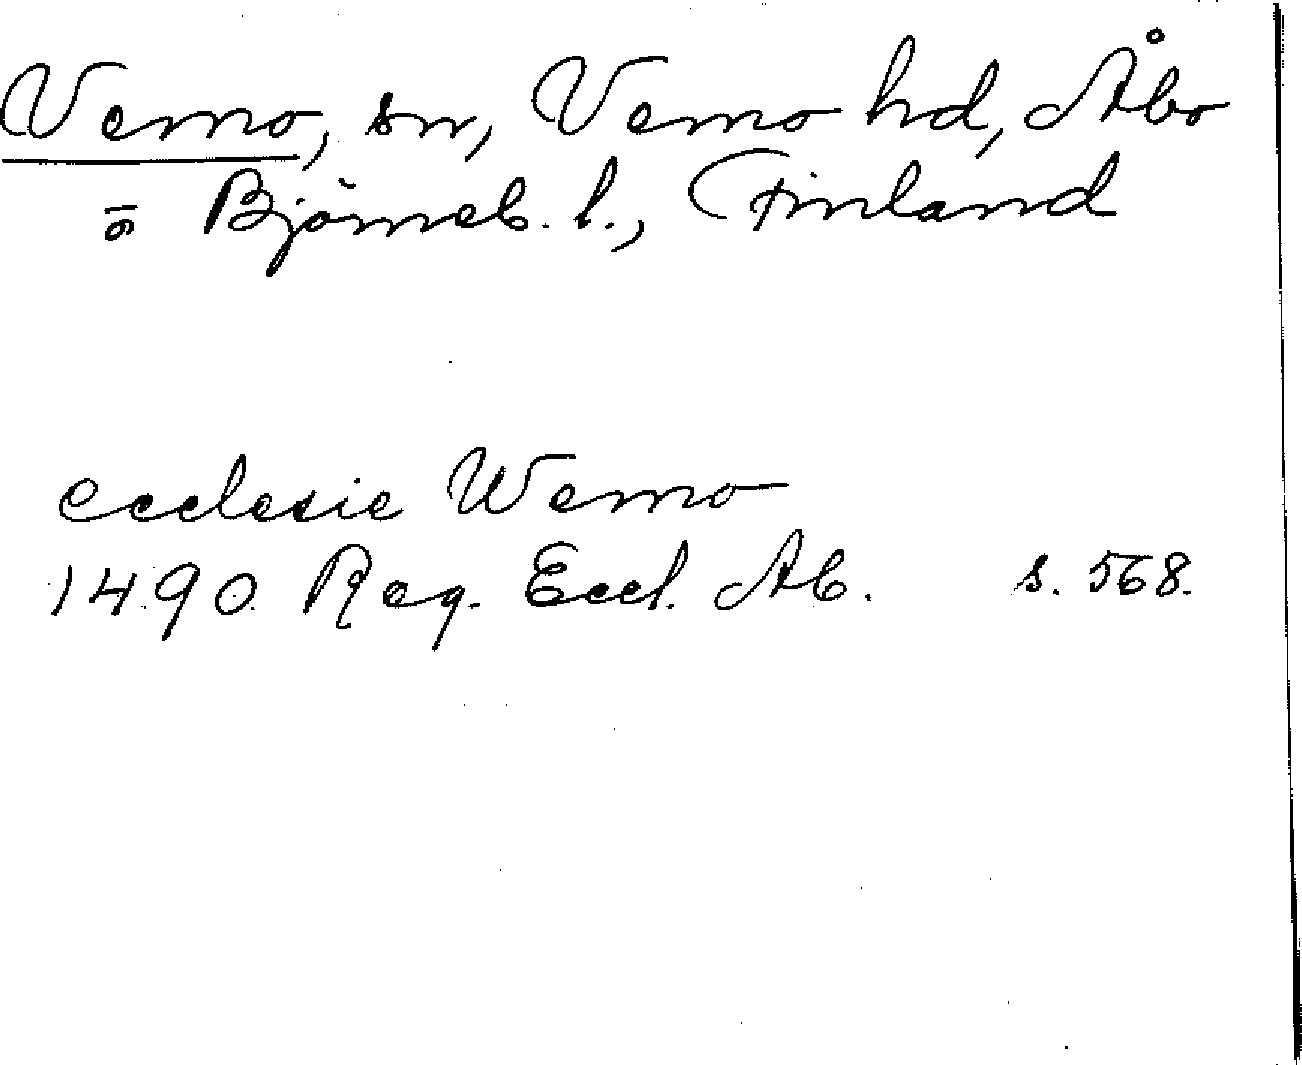 Vemo, sn, Vemo hd, Åbo
o Björneb. l., Finland
ecclesie Wemo
1490 Reg. Eccl. Ab. s. 568.